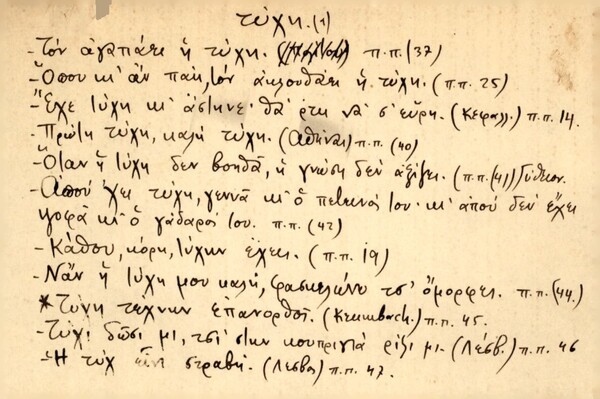 τύχη. (1)
- Τὸν ἀγαπάει ἡ τύχη. π.π. (37)
- Ὅπου κι' ἂν πάῃ, τὸν ἀκλουθάει ἡ τύχη. (π.π. 25)
- Ἔχε τύχη κι' ἄστηνε· θὰ ρτῃ νὰ σ' εὕρῃ. (Κεφαλλ.) π.π. 14.
- Πρώτη τύχη, καλὴ τύχη. (Ἀθῆναι) π.π. (40)
- Ὅταν ἡ τύχη δεν βοηθᾷ, ἡ γνώση δεν ἀξίζει. (π.π. (41)) Γύθειον.
- Ἀπού χει τύχη, γεννᾷ κι' ὁ πετεινός του· κι' ἀπού δεν ἔχει
ψοφᾷ κι' ὁ γάδαρός του. π.π. (42)
- Κάθου, κόρη, τύχην ἔχεις. (π.π. 19)
- Νἆν ἡ τύχη μου καλή, φασκελώνω τσ' ὄμορφες. π.π. (44.)
* Τύχη τέχνην ἐπανορθοῖ. (Krumbach.) π.π. 45.
- Τύχι δῶσι μι, τσὶ στὴν κουπριγιὰ ρίξι μι. (Λέσβ.) π.π. 46
- Ἡ τύχ εἶνι στραβή. (Λέσβος) π.π. 47.